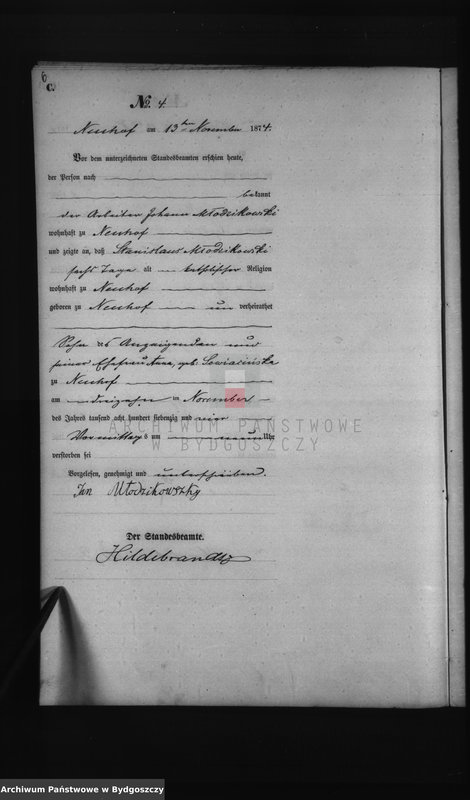 6
C.
№ 4.
Neuhof am 13ten November 1874.
Vor dem unterzeichneten Standesbeamten erschien heute,
der Person nach
bekannt
der Arbeiter Johann Młodzikowski
wohnhaft zu Neuhof
und zeigte an, daß Stanislaus Młodzikowski
sechs Tage alt katholischer Religion
wohnhaft zu Neuhof
geboren zu Neuhof unverheirathet
Sohn des Anzeigenden und
seiner Ehefrau Anna, geb.
zu Neuhof
am dreizehn im November
des Jahres tausend acht hundert siebenzig und vier
Vormittags um neun Uhr
verstorben sei
Vorgelesen, genehmigt und unterschrieben.
Jan Młodzikowszky
Der Standesbeamte.
Hildebrandt
ARCHIWUM PAŃSTWOWE
W BYDGOSZCZY
Archiwum Państwowe w Bydgoszczy